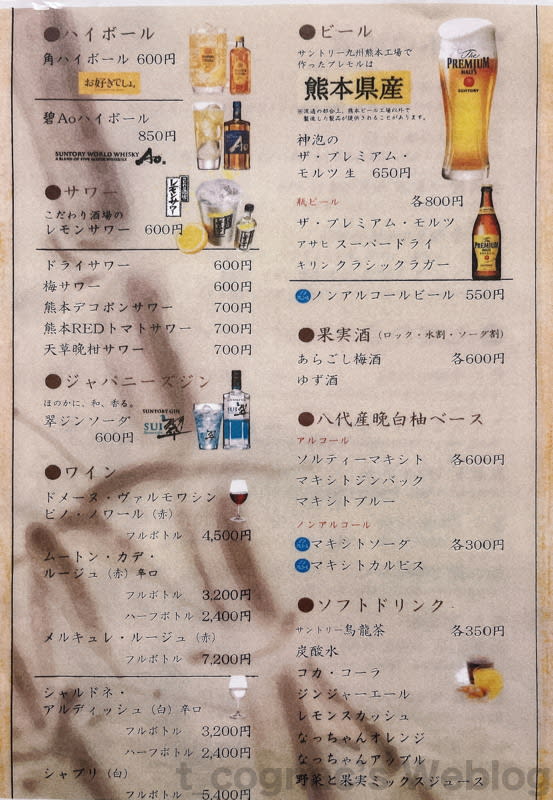 ●ハイボール
角ハイボール 600円
お好きでしょ。
碧Aoハイボール
850円
SUNTORY WORLD WHISKY
A BLEND OF FIVE MAJOR WHISKIES
Ao.
●サワー
こだわり酒場の
レモンサワー 600円
こだわり酒場の
レモンサワー
ドライサワー 600円
梅サワー 600円
熊本デコポンサワー 700円
熊本REDトマトサワー 700円
天草晩柑サワー 700円
●ジャパニーズジン
ほのかに、和、香る。
翠ジンソーダ
600円
SUNTORY GIN
SUI 翠
●ワイン
ドメーヌ・ヴァルモワシン
ピノ・ノワール (赤)
フルボトル 4,500円
ムートン・カデ・
ルージュ (赤) 辛口
フルボトル 3,200円
ハーフボトル 2,400円
メルキュレ・ルージュ (赤)
フルボトル 7,200円
シャルドネ・
アルディッシュ (白) 辛口
フルボトル 3,200円
ハーフボトル 2,400円
シャブリ (白)
フルボトル 5,400円
●ビール
サントリー九州熊本工場で
作ったプレモルは
熊本県産
※流通の都合上、熊本ビール工場以外で
製造した製品が提供されることがあります。
神泡の
ザ・プレミアム・
モルツ 生 650円
The
PREMIUM
MALT'S
SUNTORY
瓶ビール 各800円
ザ・プレミアム・モルツ
アサヒ スーパードライ
キリン クラシックラガー
PREMIUM
ノンアルコールビール 550円
●果実酒 (ロック・水割・ソーダ割)
あらごし梅酒 各600円
ゆず酒
●八代産晩白柚ベース
アルコール
ソルティーマキシト 各600円
マキシトジンバック
マキシトブルー
ノンアルコール
マキシトソーダ 各300円
マキシトカルピス
●ソフトドリンク
サントリー烏龍茶 各350円
炭酸水
コカ・コーラ
ジンジャーエール
レモンスカッシュ
なっちゃんオレンジ
なっちゃんアップル
野菜と果実ミックスジュース